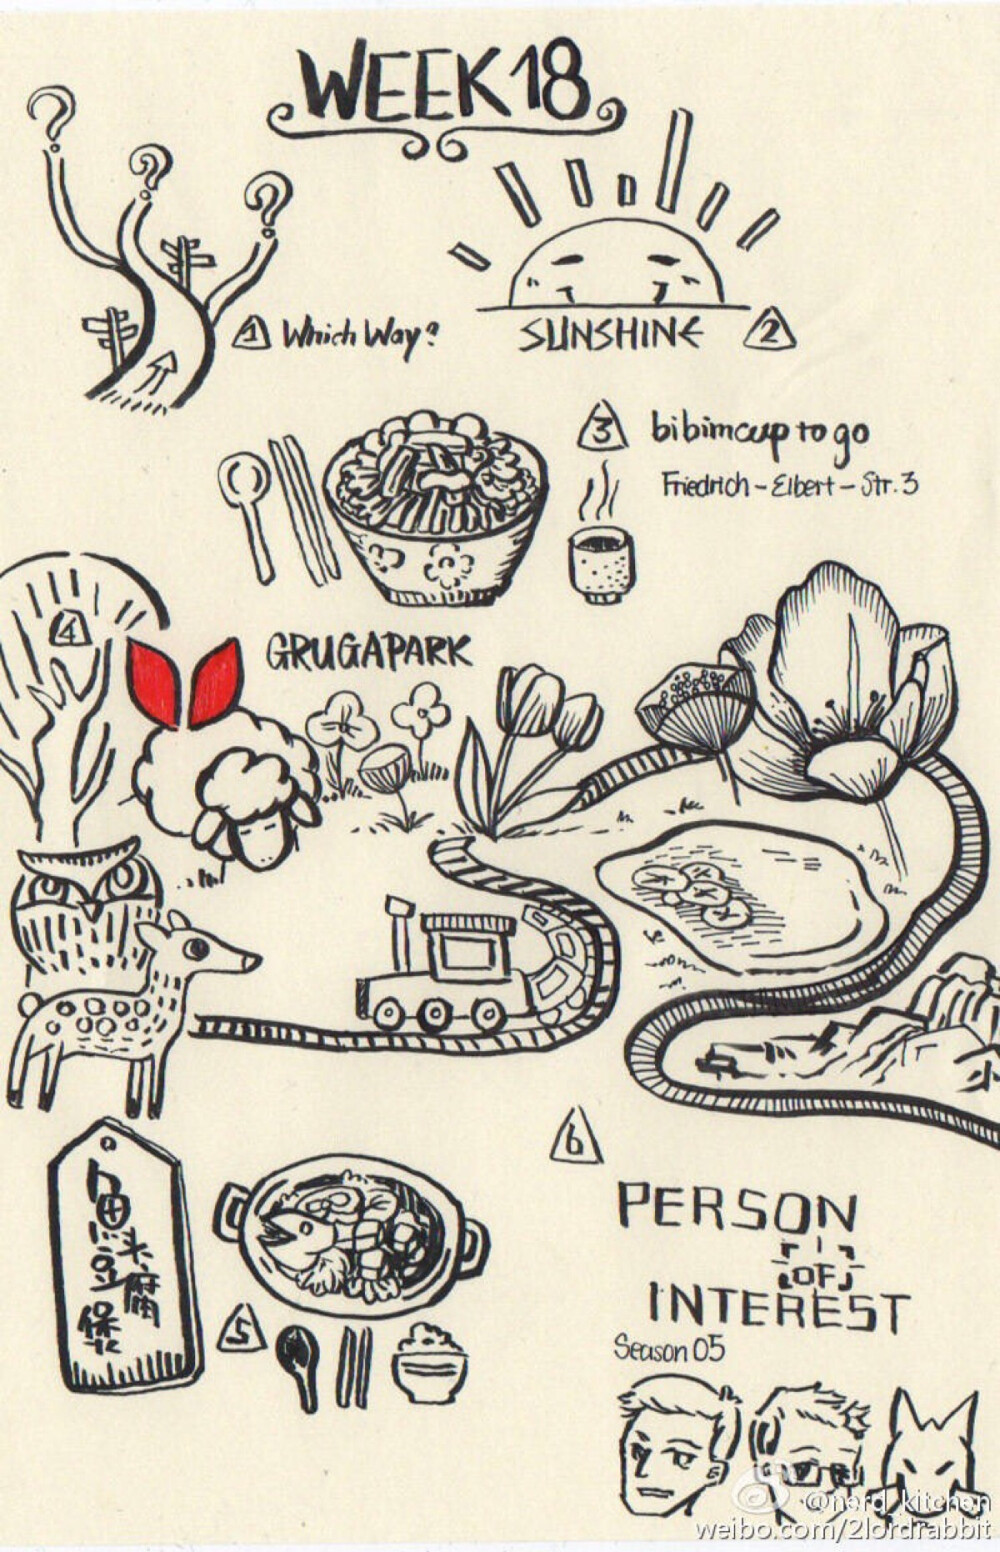 WEEK 18
1 Which Way?
SUNSHINE 2
3 bibimcup to go
Friedrich - Elbert - Str. 3
4
GRUGAPARK
鱼头豆腐煲
5
6
PERSON
OF
INTEREST
Season 05
@nerd_kitchen
weibo.com/2lordrabbit